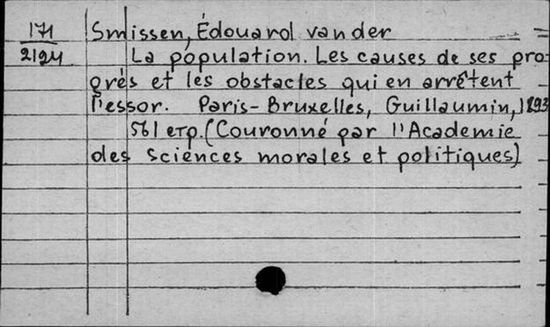 171 Smissen, Édouard van der
2124 La population. Les causes de ses pro-
grés et les obstacles qui en arrêtent
l'essor. Paris-Bruxelles, Guillaumin, 1893
561 стр. (Couronné par l'Academie
des sciences morales et politiques)